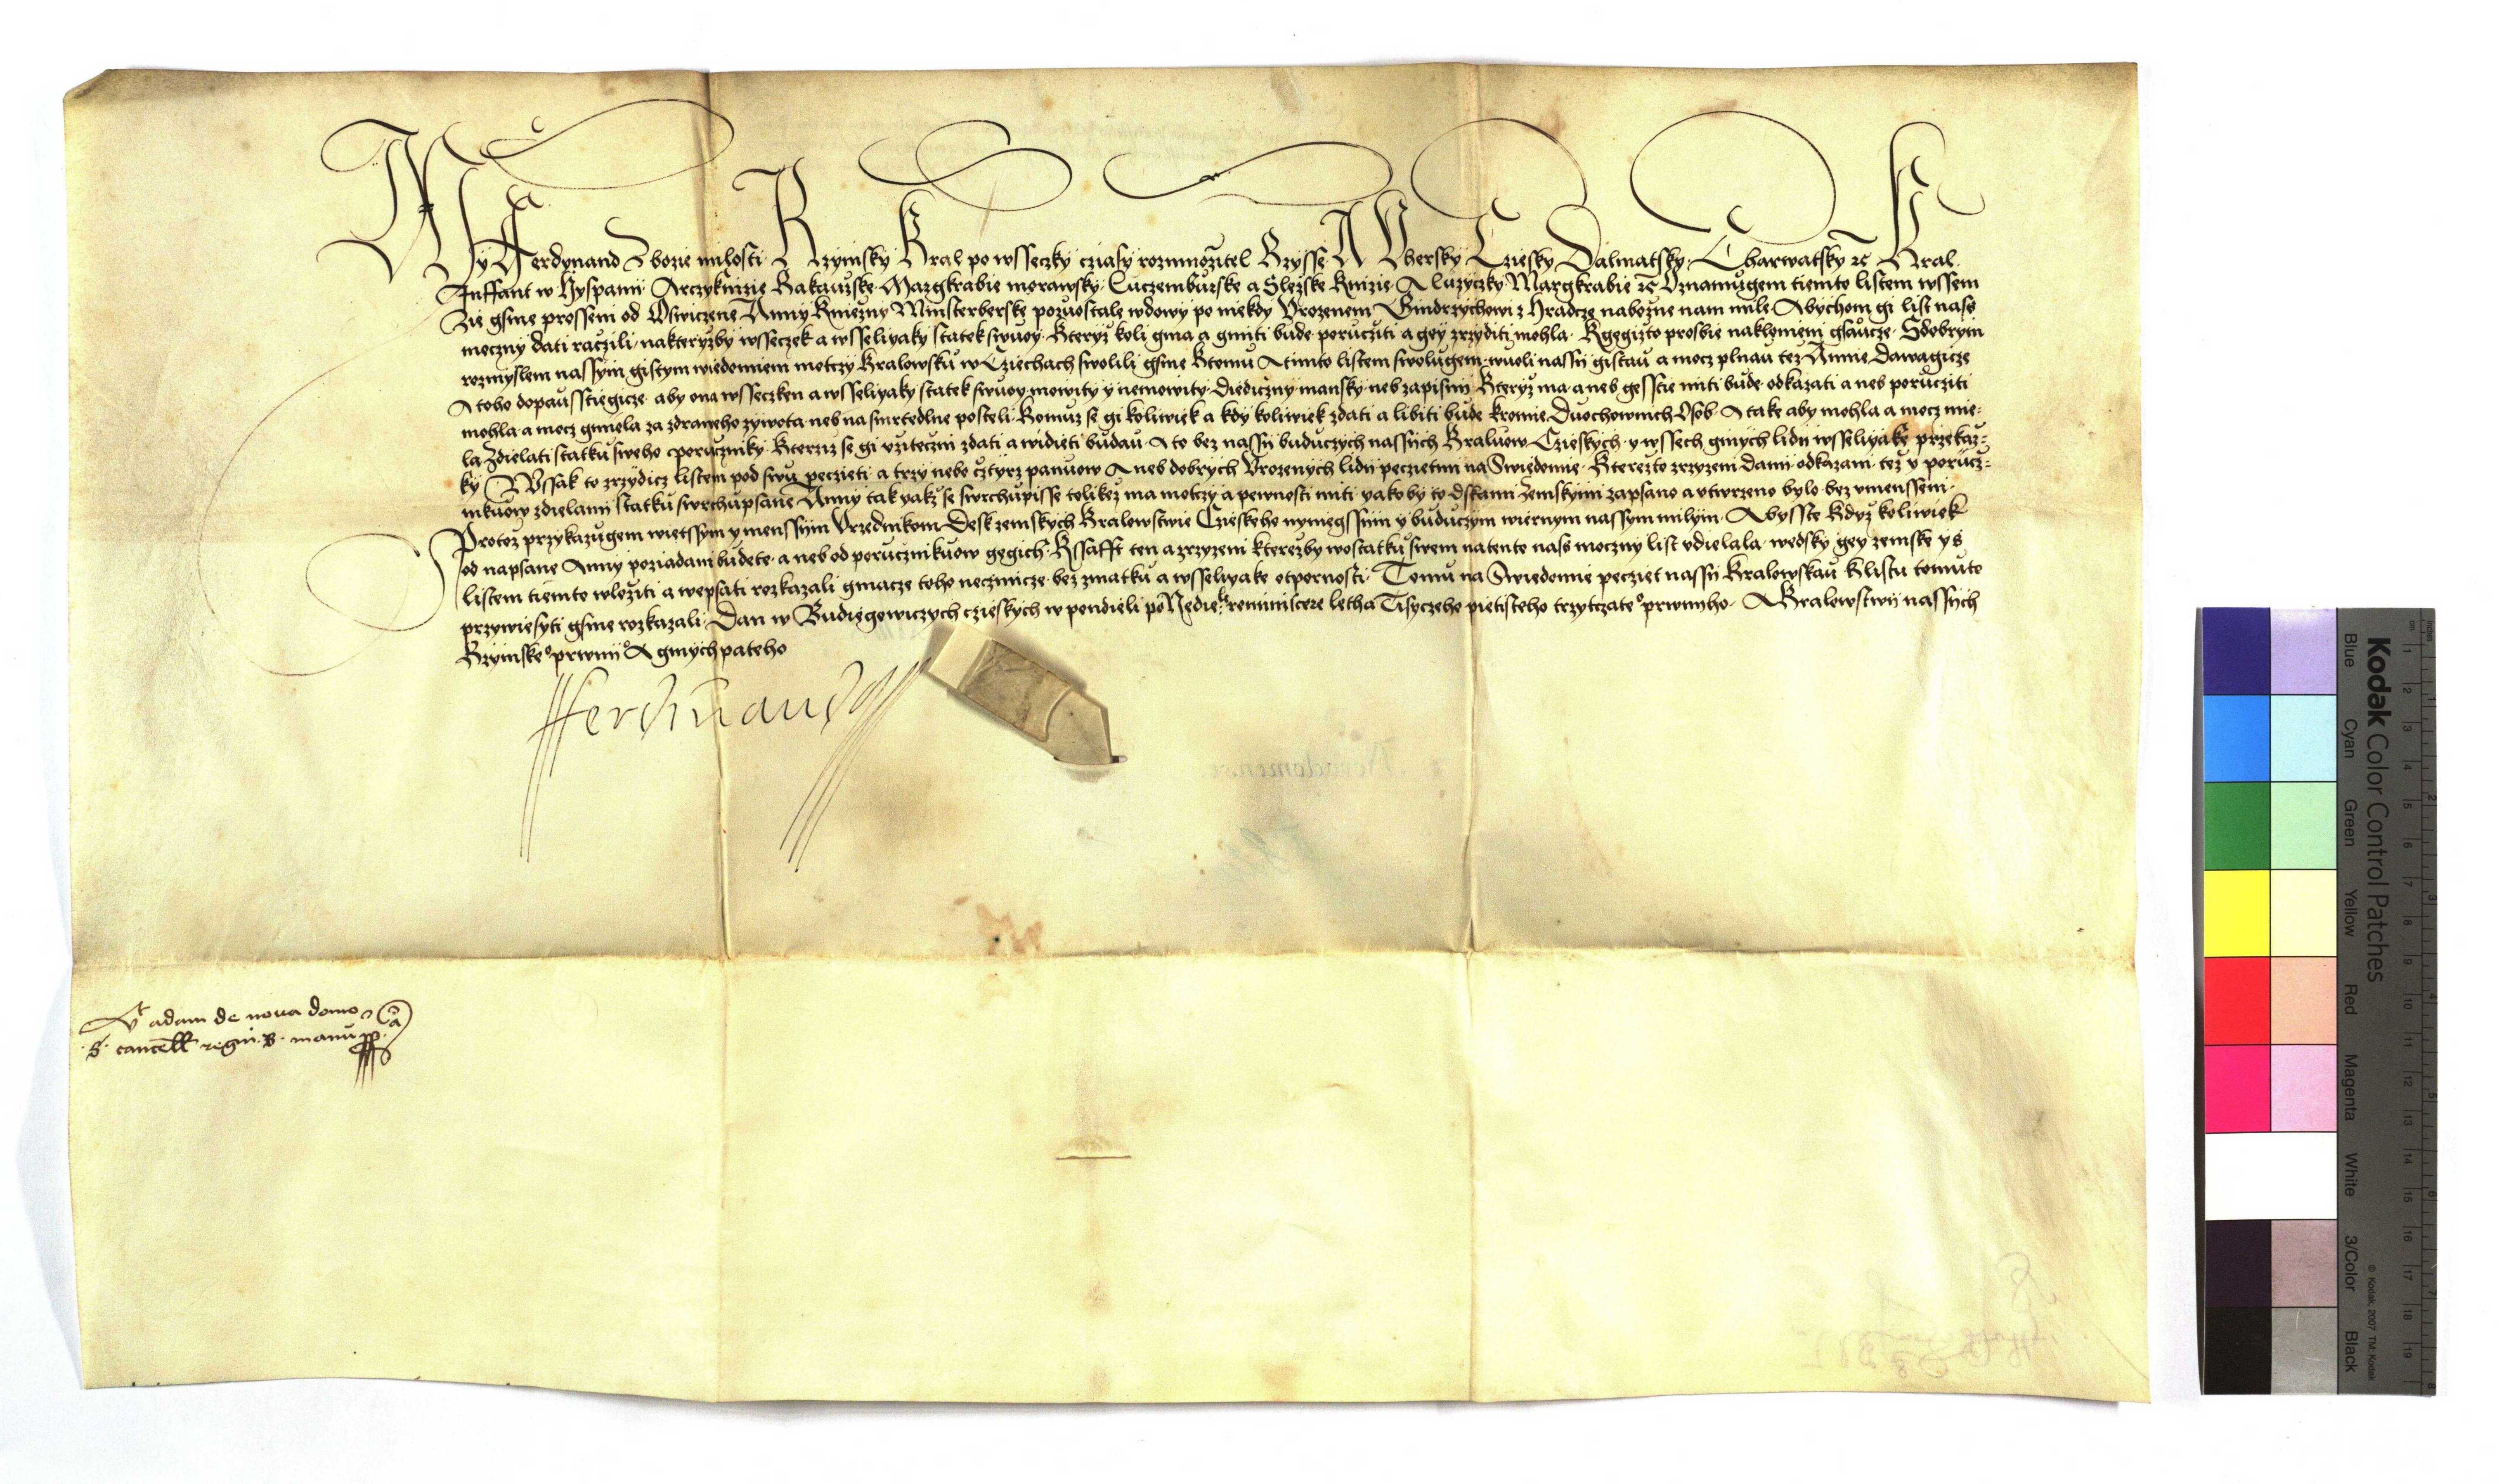 My Ferdynand Z bozie milosti Rzymsky Kral po wsseczky cziasy rozmnozitel Rzysse A Vhersky Cziesky Dalmatsky Charwatsky ꝛc Kral
Inffant w Hyspanii Arczyknizie Rakauzske Margkrabie morawsky Luczemburske a Slezske Knizie A luzyczky Margkrabie ꝛc Vznamugem tiemto listem wssem
Zie gsme prossem od Oswiczene Anny Kniezny Minsterberske pozuostale wdowy po niekdy Vrozenem Gindrzychowi z Hradcze nabozne nam mile Abychom gi list nass
moczny dati raczili nakteryzby wsseczek a wsseliyaky statek swuoy Kteryz koli gma a gmiti bude poruczuti a gey zrzyditi mohla Kgegizto prosbie nakloniem gsaucze Sdobrym
rozmyslem nassym gistym wiedomiem motczy Kralowsku w Cziechach swolili gsme Ktomu A timto listem swolugem wuoli nassy gistau a mocz plnau tez Annie dawagicze
A toho dopausstiegicze aby ona wsseczken a wsseliyaky statek swuoy mowity y nemowity diediczny mansky neb zapisny Kteryz ma a neb gesstie miti bude odkazati a neb porucziti
mohla a mocz gmiela za zdraweho zywota neb na smrtedlne posteli Komuz se gi koliwiek a kdy koliwiek zdati a libiti bude kromie Duochownich Osob A take aby mohla a mocz mie-
la Zdielati statku sweho cporuczniky Kterziz se gi vziteczni zdati a widieti budau A to bez nassy buduczych nassych Kraluow Czieskych y wssech ginych lidii wsseliyake przekaz-
ky Wssak to zrzydicz listem pod swu peczieti a trzy nebo cztyrz panuow A neb dobrych Vrozenych lidii peczietmi na Swiedomie Kterezto zrzyzeni dani odkazani tez y porucz-
nikuow zdielanii statku swrchupsane Anny tak yakz se swrchupisse tolikez ma motczy a pewnosti miti yako by to dskami Zemskymi zapsano a vtwrzeno bylo bez vmensseni
Protoz przykazugem wietssym y menssym Vrzednikom Desk zemskych Kralowstwie Czieskeho nyniegssim y buduczym wiernym nassym milym Abysste Kdyz koliwiek
od napsane Anny poziadani budete a neb od porucznikuow gegich Kssafft ten a zrzyzeni kterezby wostatku swem na tento nass moczny list vdielala wedsky gey zemske y s
listem tiemto wloziti a wepsati rozkazali gmacze toho neczinicze bez zmatku a wsseliyake otpornosti Tomu na Swiedomie peczet nassy Kralowskau Klistu tomuto
przywiesyti gsme rozkazali Dan w Budiegowiczych czieskych w pondieli po Nedieli reminiscere letha Tisyczeho pietisteho trzytczate° prwnyho Kralowstwij nassych
Rzymske° prwnij° A ginych pateho
fferdinandus
Vt adam de noua domo
S. cancell regni B. manu pp
Kodak Color Control Patches
Blue Cyan Green Yellow Red Magenta White 3/Color Black
© Kodak, 2007 TM: Kodak
inches
cm 1 2 3 4 5 6 7 8 9 10 11 12 13 14 15 16 17 18 19
1 2 3 4 5 6 7 8